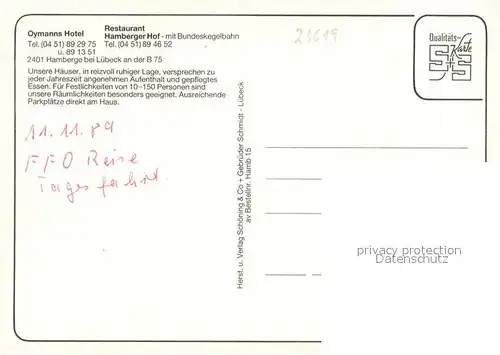 Oymanns Hotel
Tel. (04 51) 89 29 75
u. 89 13 51
Restaurant
Hamberger Hof - mit Bundeskegelbahn
Tel. (04 51) 89 46 52
2401 Hamberge bei Lübeck an der B 75
Unsere Häuser, in reizvoll ruhiger Lage, versprechen zu
jeder Jahreszeit angenehmen Aufenthalt und gepflegtes
Essen. Für Festlichkeiten von 10-150 Personen sind
unsere Räumlichkeiten besonders geeignet. Ausreichende
Parkplätze direkt am Haus.
11.11.89
FFO Reise
Tagesfahrt.
Herst. u. Verlag Schöning & Co + Gebrüder Schmidt - Lübeck
av Bestellnr. Hamb 15
23619
Qualitäts-
Karte
privacy protection
Datenschutz